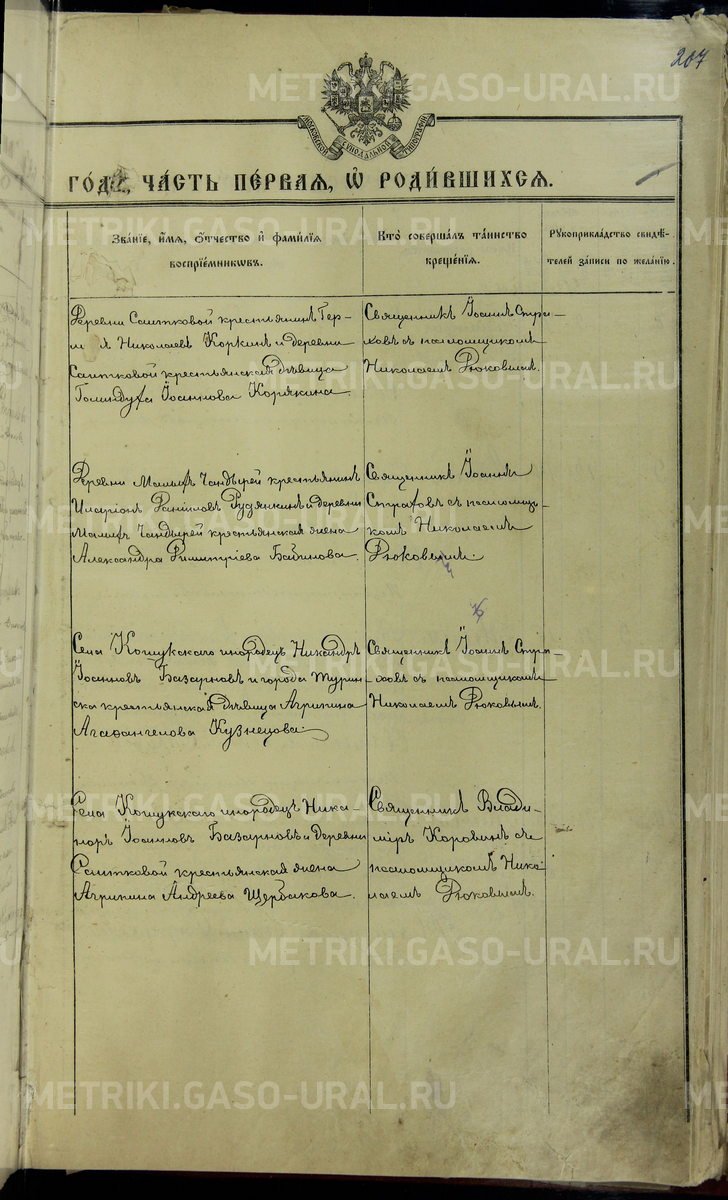 207
МОСКОВСКОЙ СѴНОДАЛЬНОЙ ТИПОГРАФІИ
ГО́ДЪ, ЧА́СТЬ ПЕ́РВАЯ, Ѿ РОДИ́ВШИХСЯ.
Зва́нїе, и҆́мя, ѻ҆́тчество и҆ фами́лїя
воспрїе́мникѡвъ.
Кто̀ соверша́лъ та́инство
креще́нїя.
Рꙋкоприкла́дство свидѣ́-
телей за́писи по жела́нїю.
Деревни Саитковой крестьянинъ Гер-
Николаевъ Коркинъ и деревни
Саитковой крестьянская дѣвица
Іоаннова Корякина.
Священникъ Іоаннъ Стра-
ховъ съ псаломщикомъ
Николаемъ
Деревни крестьянинъ
Иларіонъ и деревни
крестьянская жена
Александра Димитріева Бабинова.
Священникъ Іоаннъ
Страховъ съ псаломщи-
комъ Николаемъ
Села Кошукскаго инородецъ Никандръ
Іоанновъ Базарновъ и города Турин-
ска крестьянская дѣвица Агрипина
Агафангелова Кузнецова.
Священникъ Іоаннъ Стра-
ховъ съ псаломщикомъ
Николаемъ
Села Кошукскаго инородецъ Ника-
норъ Іоанновъ Базарновъ и деревни
Саитковой крестьянская жена
Агрипина Андреева Щербакова.
Священникъ Влади-
міръ Коровинъ съ
псаломщикомъ Нико-
лаемъ
METRIKI.GASO-URAL.RU